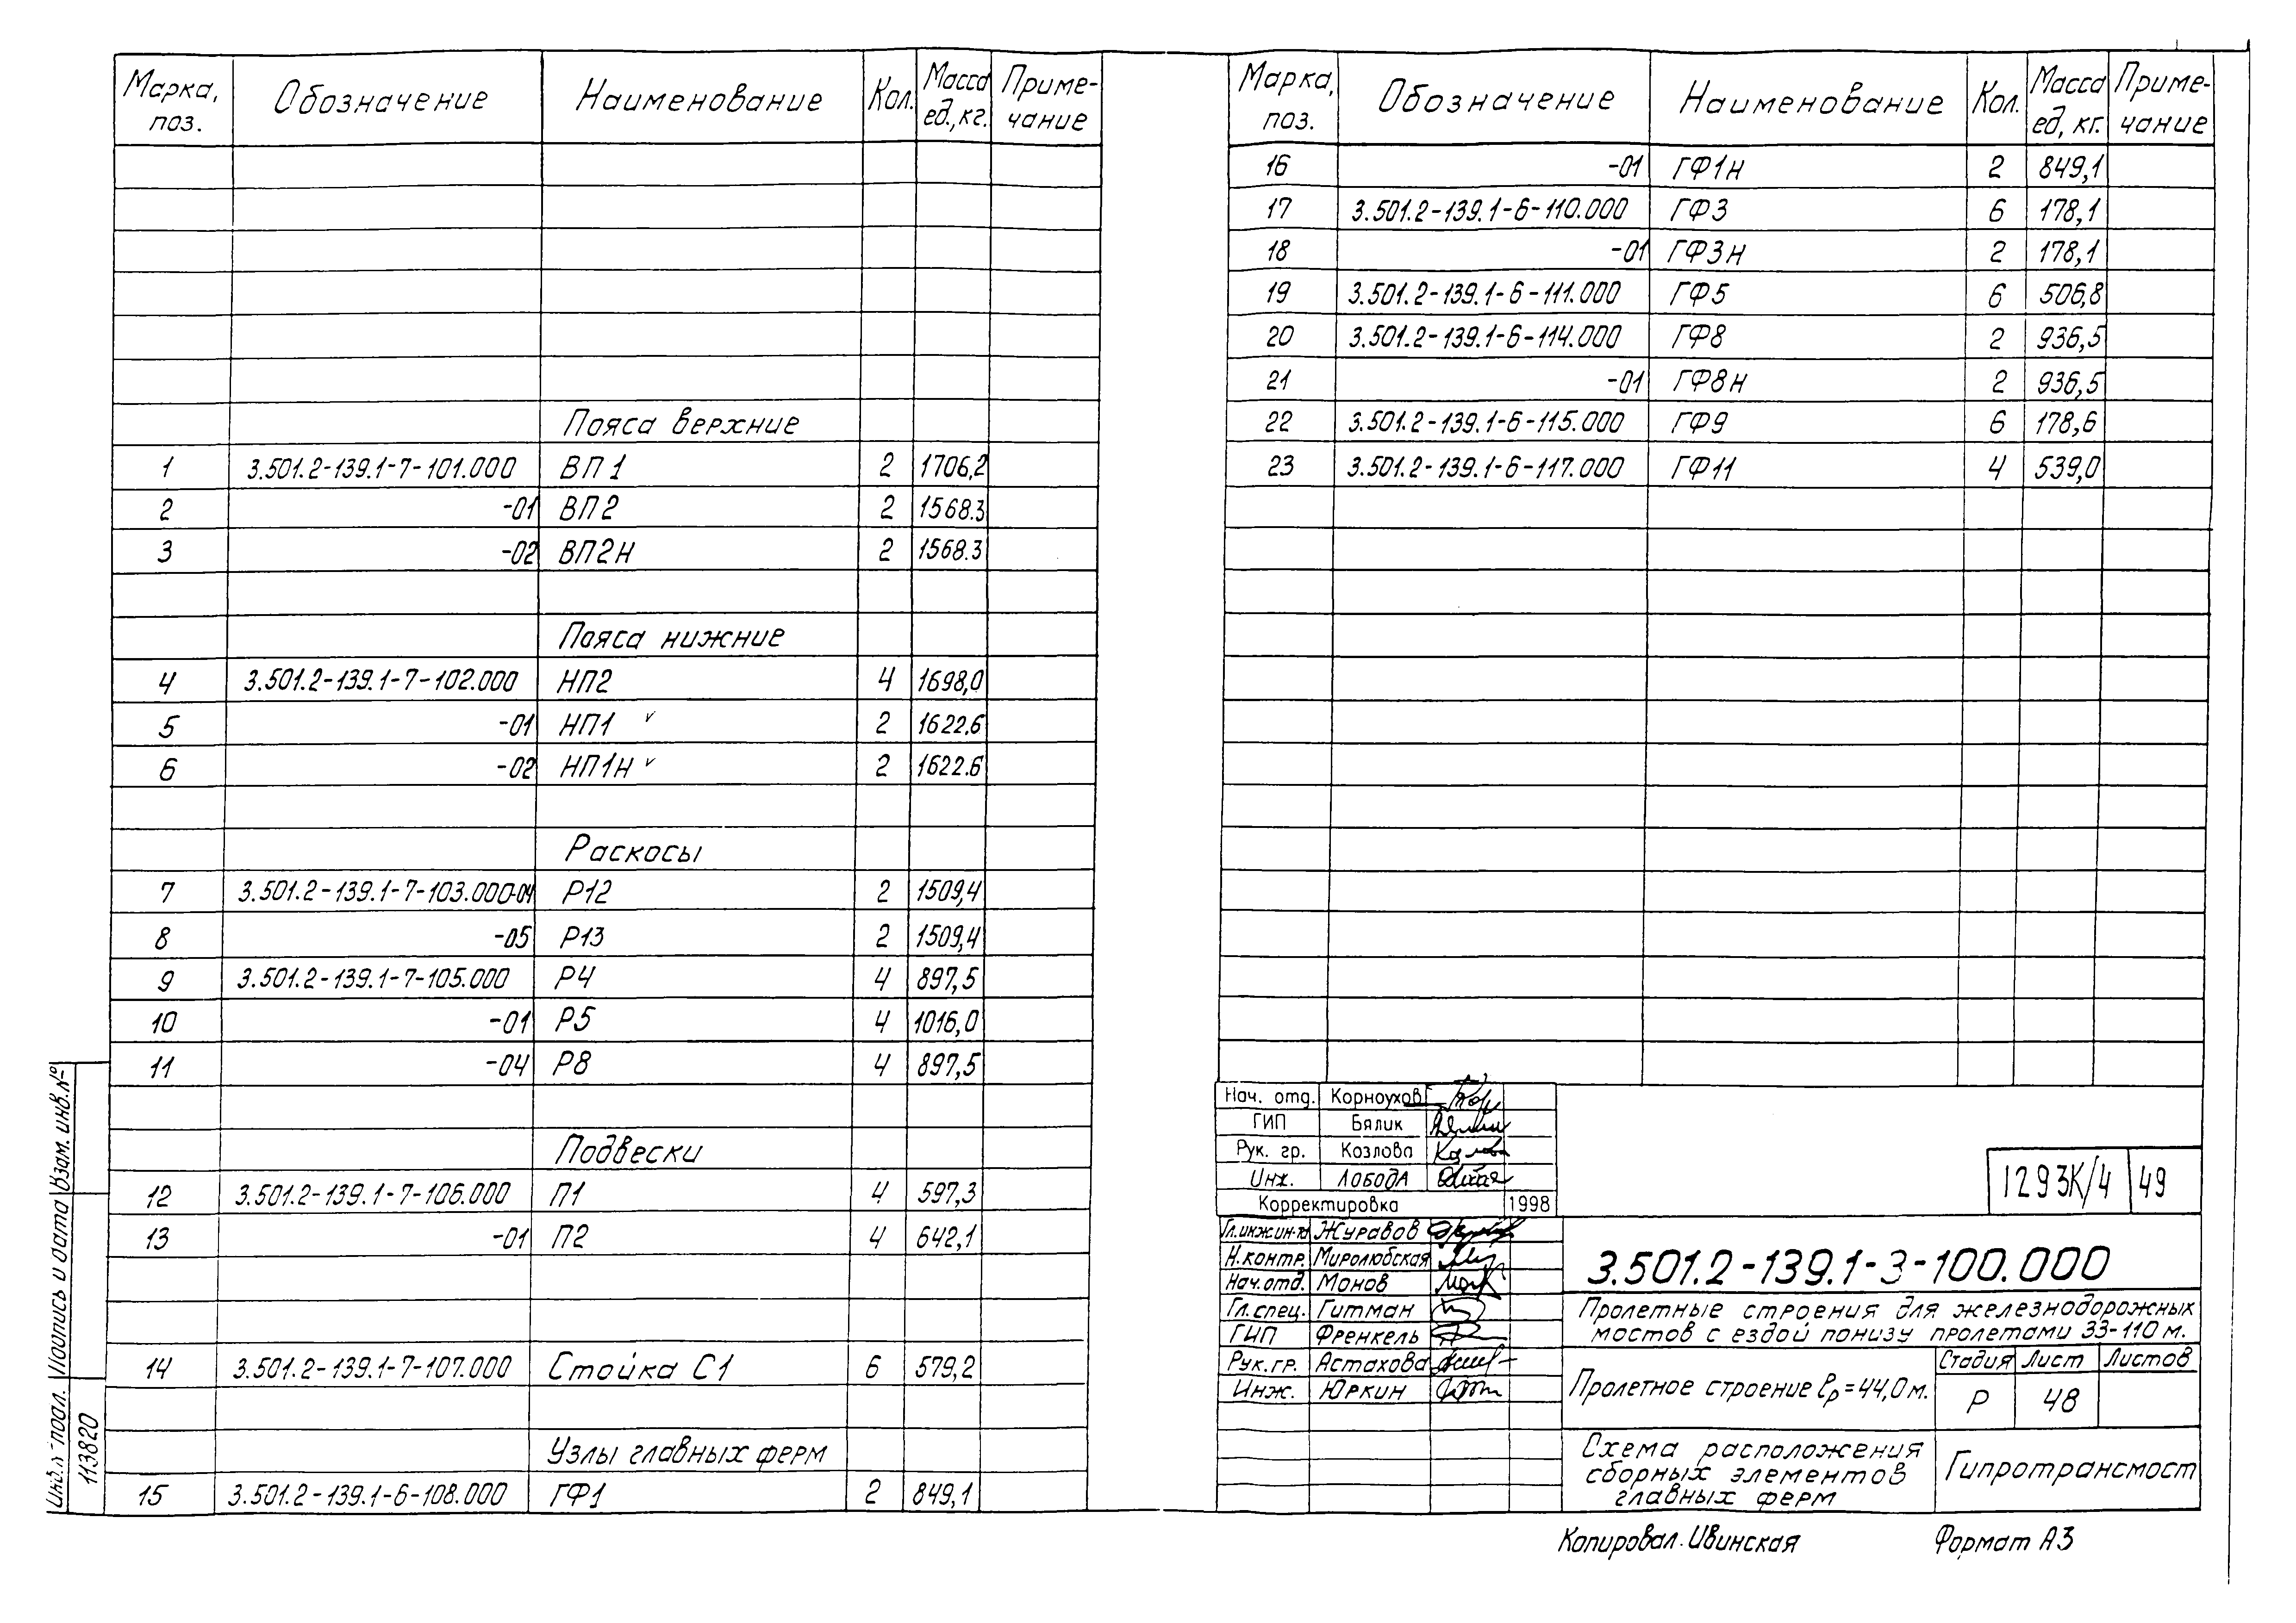 Марка, поз. Обозначение Наименование Кол. Масса ед., кг. Приме-чание
Пояса верхние
1 3.501.2-139.1-7-101.000 ВП1 2 1706,2
2 -01 ВП2 2 1568.3
3 -02 ВП2Н 2 1568.3
Пояса нижние
4 3.501.2-139.1-7-102.000 НП2 4 1698,0
5 -01 НП1 v 2 1622,6
6 -02 НП1Н v 2 1622.6
Раскосы
7 3.501.2-139.1-7-103.000-04 Р12 2 1509,4
8 -05 Р13 2 1509,4
9 3.501.2-139.1-7-105.000 Р4 4 897,5
10 -01 Р5 4 1016,0
11 -04 Р8 4 897,5
Подвески
12 3.501.2-139.1-7-106.000 П1 4 597,3
13 -01 П2 4 642,1
14 3.501.2-139.1-7-107.000 Стойка С1 6 579,2
Узлы главных ферм
15 3.501.2-139.1-6-108.000 ГФ1 2 849,1
Марка, поз. Обозначение Наименование Кол. Масса ед, кг. Приме-чание
16 -01 ГФ1Н 2 849,1
17 3.501.2-139.1-6-110.000 ГФ3 6 178,1
18 -01 ГФ3Н 2 178,1
19 3.501.2-139.1-6-111.000 ГФ5 6 506,8
20 3.501.2-139.1-6-114.000 ГФ8 2 936,5
21 -01 ГФ8Н 2 936,5
22 3.501.2-139.1-6-115.000 ГФ9 6 178,6
23 3.501.2-139.1-6-117.000 ГФ11 4 539,0
Нач. отд. Корноухов
ГИП Бялик
Рук. гр. Козлова
Инж. Лобода
Корректировка 1998
Гл.инж.ин-та Журавов
Н.контр. Миролюбская
Нач.отд. Монов
Гл.спец. Гитман
ГИП Френкель
Рук.гр. Астахова
Инж. Юркин
1293К/4 49
3.501.2-139.1-3-100.000
Пролетные строения для железнодорожных
мостов с ездой понизу пролетами 33-110 м.
Пролетное строение ℓр=44,0м.
Стадия Лист Листов
Р 48
Схема расположения
сборных элементов
главных ферм
Гипротрансмост
Копировал. Ивинская Формат А3
Инв.№ подл. Подпись и дата Взам. инв.№
113820